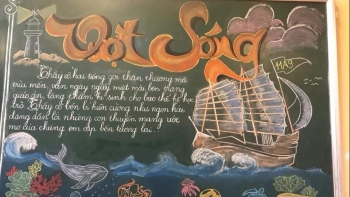 Vượt Sóng
11A9
Thầy cô hai tiếng gọi thân thương mà
trìu mến, vẫn ngày ngày miệt mài bên trang
giáo án, lặng thầm hi sinh cho bao thế hệ học
trò. Thầy cô bền bỉ kiên cường như ngọn hải
đăng dẫn lối những con thuyền mang ước
mơ của chúng em cập bến tương lai.